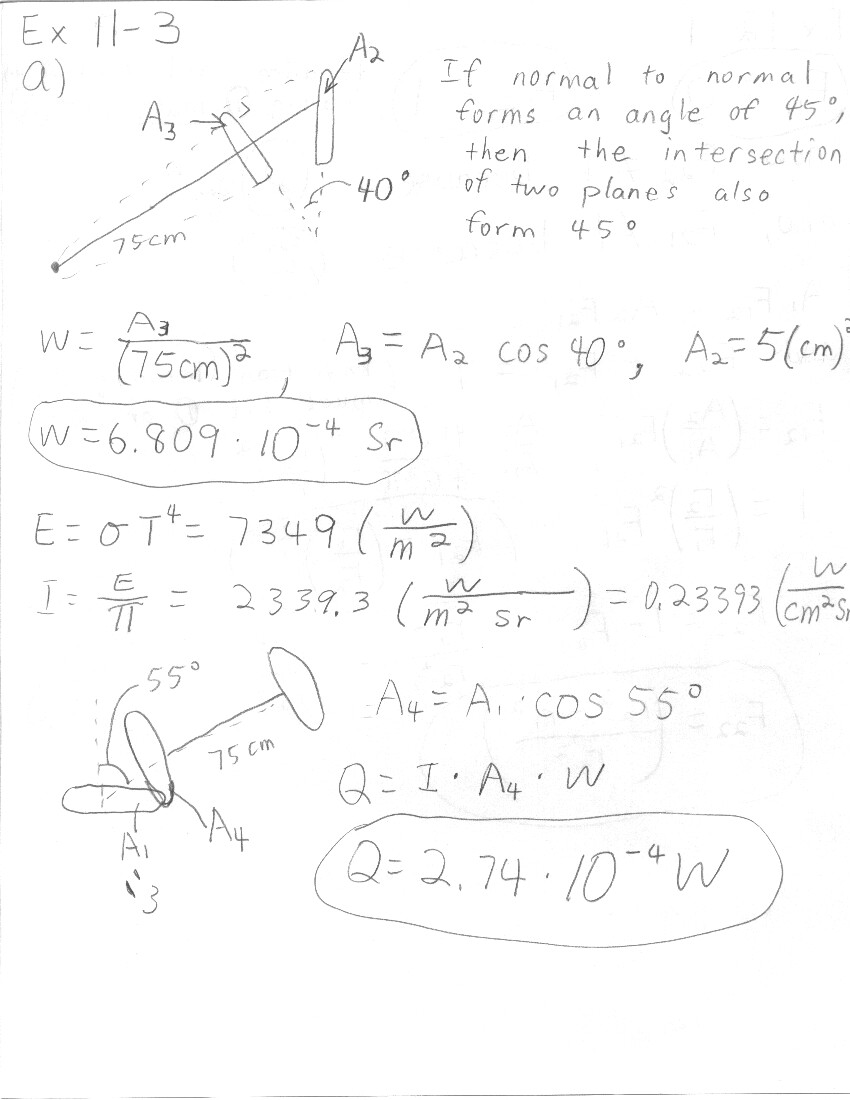 Ex 11-3
a)
A2
A3
40°
75cm
If normal to normal
forms an angle of 45°,
then the intersection
of two planes also
form 45°
W = A3/(75cm)², A3 = A2 cos 40°, A2 = 5(cm)²
W = 6.809 · 10⁻⁴ Sr
E = σT⁴ = 7349 (W/m²)
I = E/π = 2339.3 (W/m² Sr) = 0.23393 (W/cm² Sr
55°
75 cm
A1
A4
3
A4 = A1 · cos 55°
Q = I · A4 · W
Q = 2.74 · 10⁻⁴ W